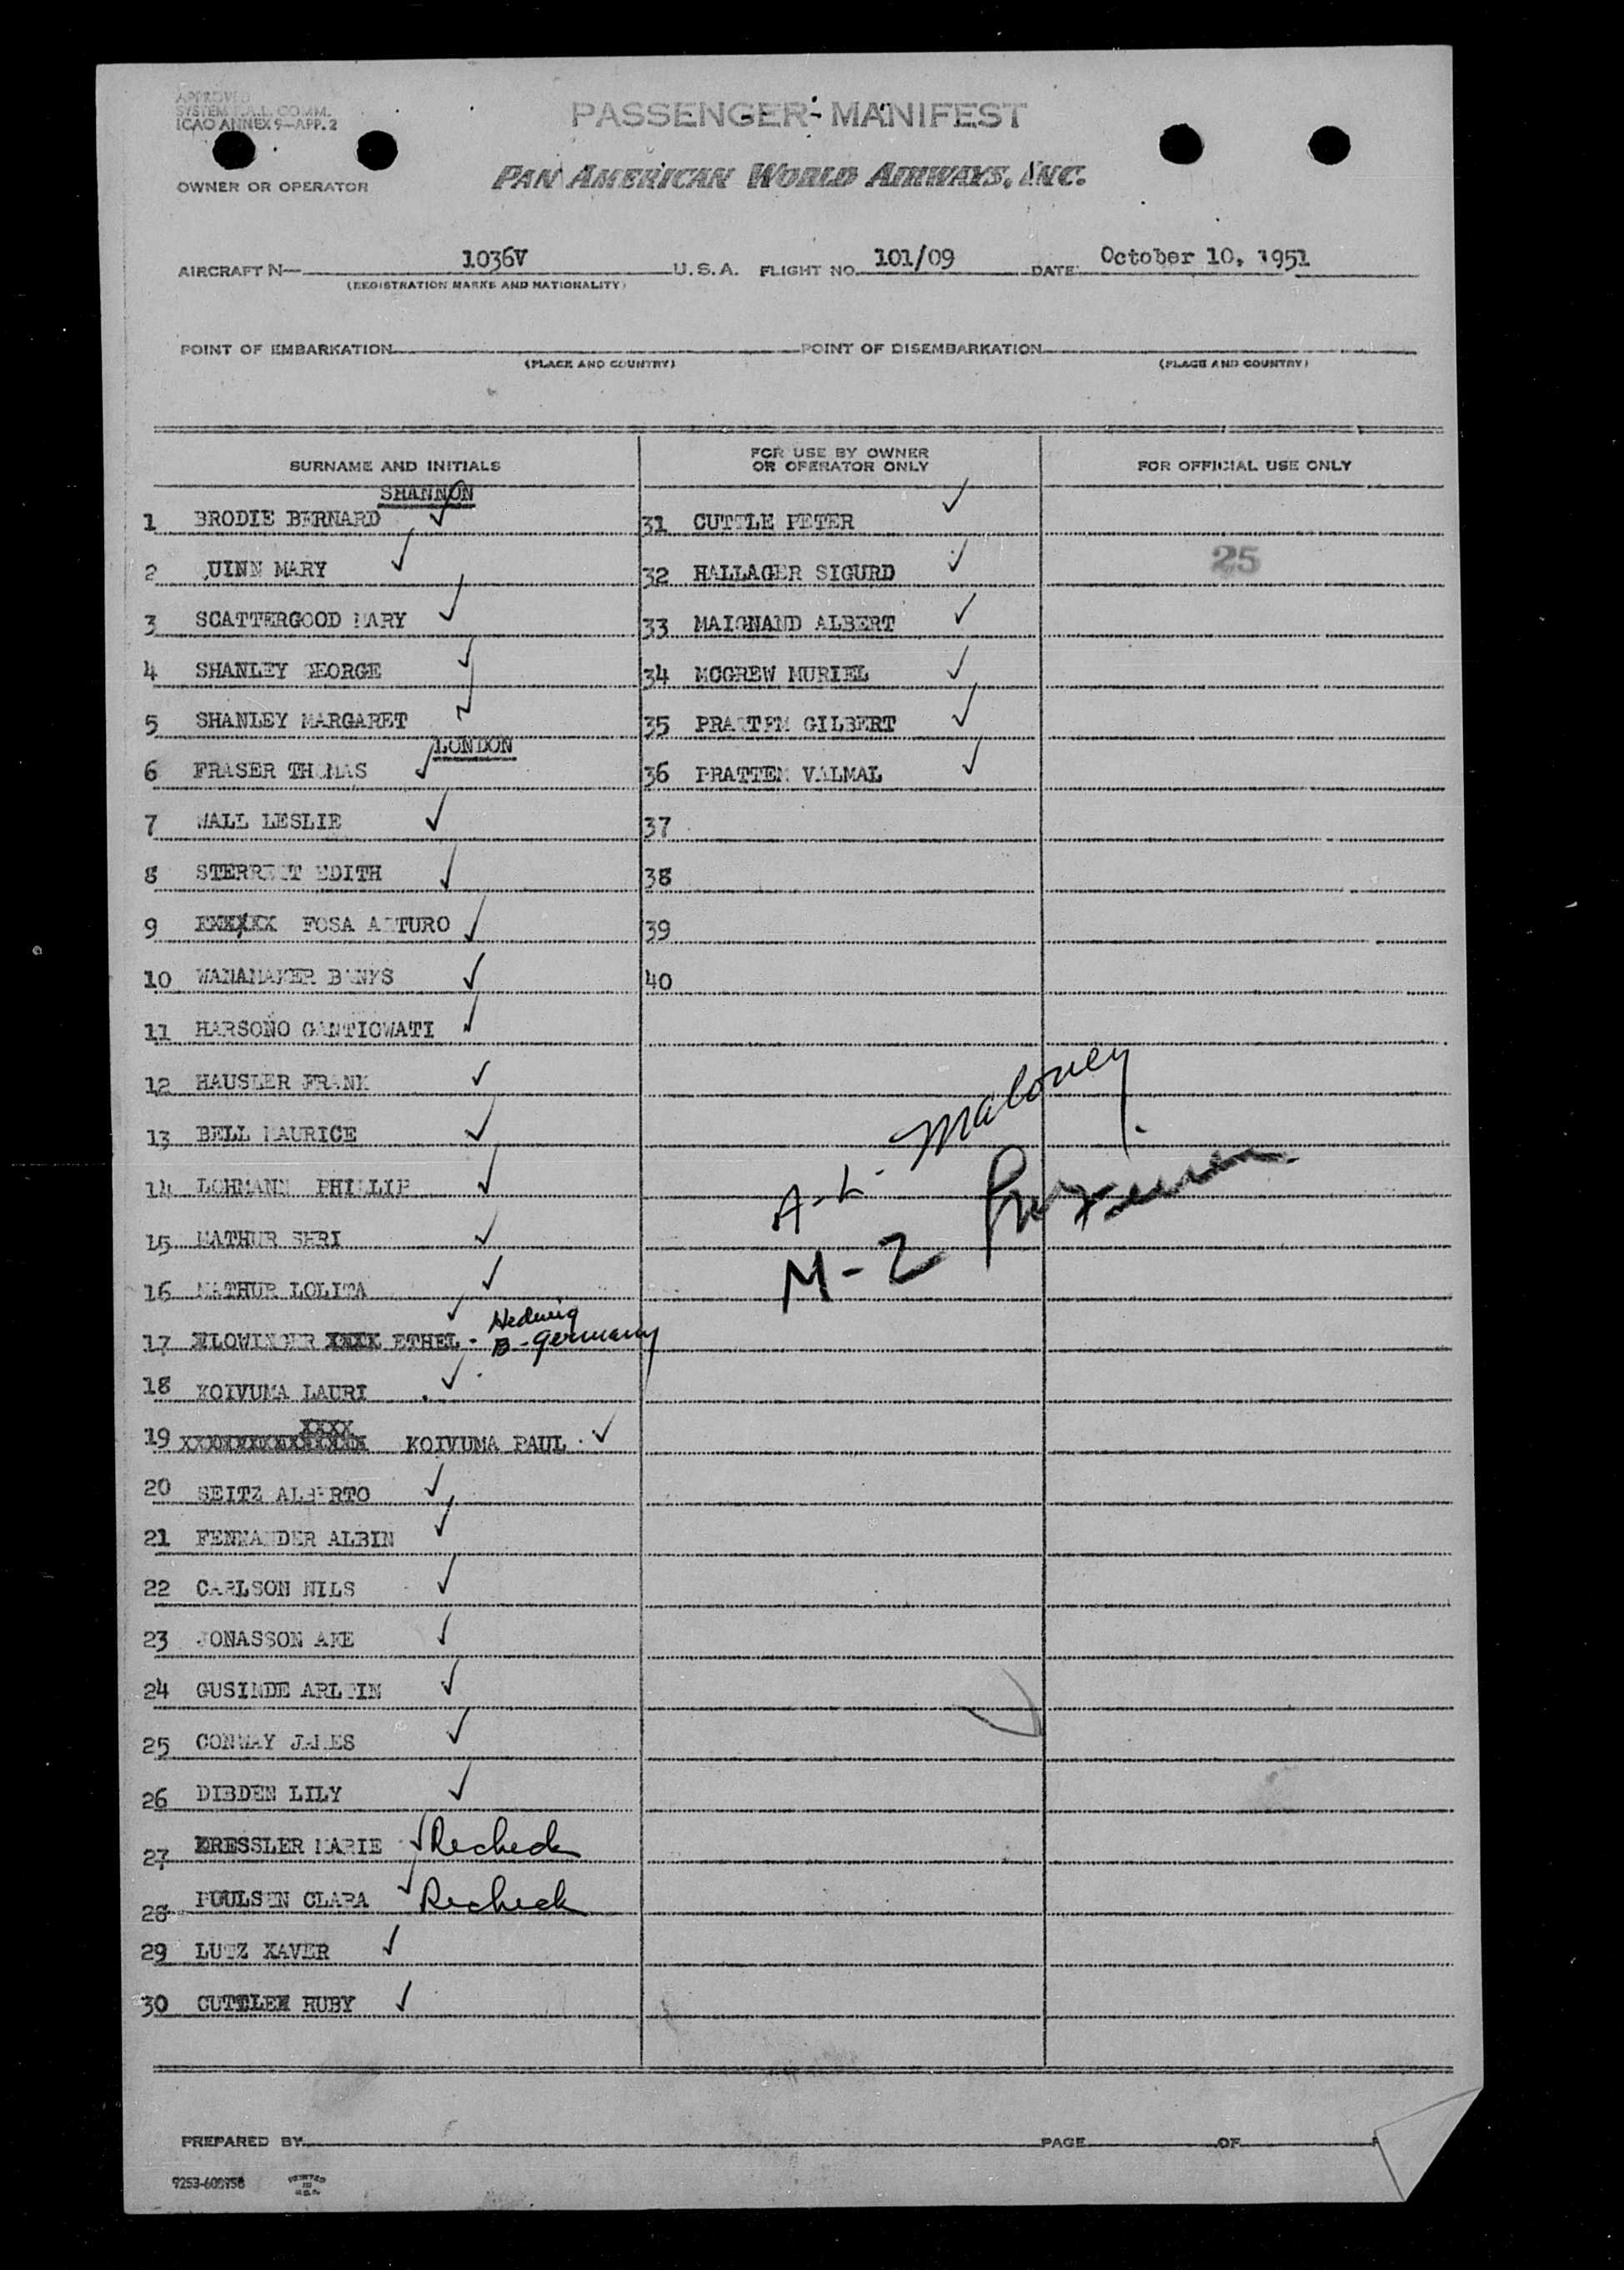 APPROVED
SYSTEM F.A.L. COMM.
ICAO ANNEX 9—APP. 2
PASSENGER MANIFEST
OWNER OR OPERATOR
PAN AMERICAN WORLD AIRWAYS, INC.
AIRCRAFT N— 1036V U.S.A. FLIGHT NO. 101/09 DATE October 10, 1951
(REGISTRATION MARKS AND NATIONALITY)
POINT OF EMBARKATION POINT OF DISEMBARKATION
(PLACE AND COUNTRY) (PLACE AND COUNTRY)
SURNAME AND INITIALS
SHANNON
1 BRODIE BERNARD
2 UINN MARY
3 SCATTERGOOD MARY
4 SHANLEY GEORGE
5 SHANLEY MARGARET
LONDON
6 FRASER THOMAS
7 WALL LESLIE
8 STERRETT EDITH
9 XXXXXX FOSA ARTURO
10 WANAMAKER BANKS
11 HARSONO GANTIOWATI
12 HAUSLER FRANK
13 BELL MAURICE
14 LOHMANN PHILLIP
15 MATHUR SHRI
16 MATHUR LOLITA
17 XLOWINGER XXXX ETHEL - Hedwig
B - Germany
18 KOIVUMA LAURI
XXXX
19 XXXXXXXXXXXXXXXX KOIVUMA PAUL
20 SEITZ ALBERTO
21 FENNANDER ALBIN
22 CARLSON NILS
23 JONASSON AKE
24 GUSINDE
25 CONWAY JAMES
26 DIBDEN LILY
27 KRESSLER MARIE Recheck
28 POULSEN CLARA Recheck
29 LUTZ XAVER
30 CUTTLEX RUBY
FOR USE BY OWNER
OR OPERATOR ONLY
31 CUTTLE PETER
32 HALLAGER SIGURD
33 MAIGNAND ALBERT
34 MCGREW MURIEL
35 PRATTEM GILBERT
36 PRATTEN VALMAL
37
38
39
40
A-L- Maloney
M-2
FOR OFFICIAL USE ONLY
25
PREPARED BY PAGE OF
9253-608958
PRINTED
IN
U.S.A.